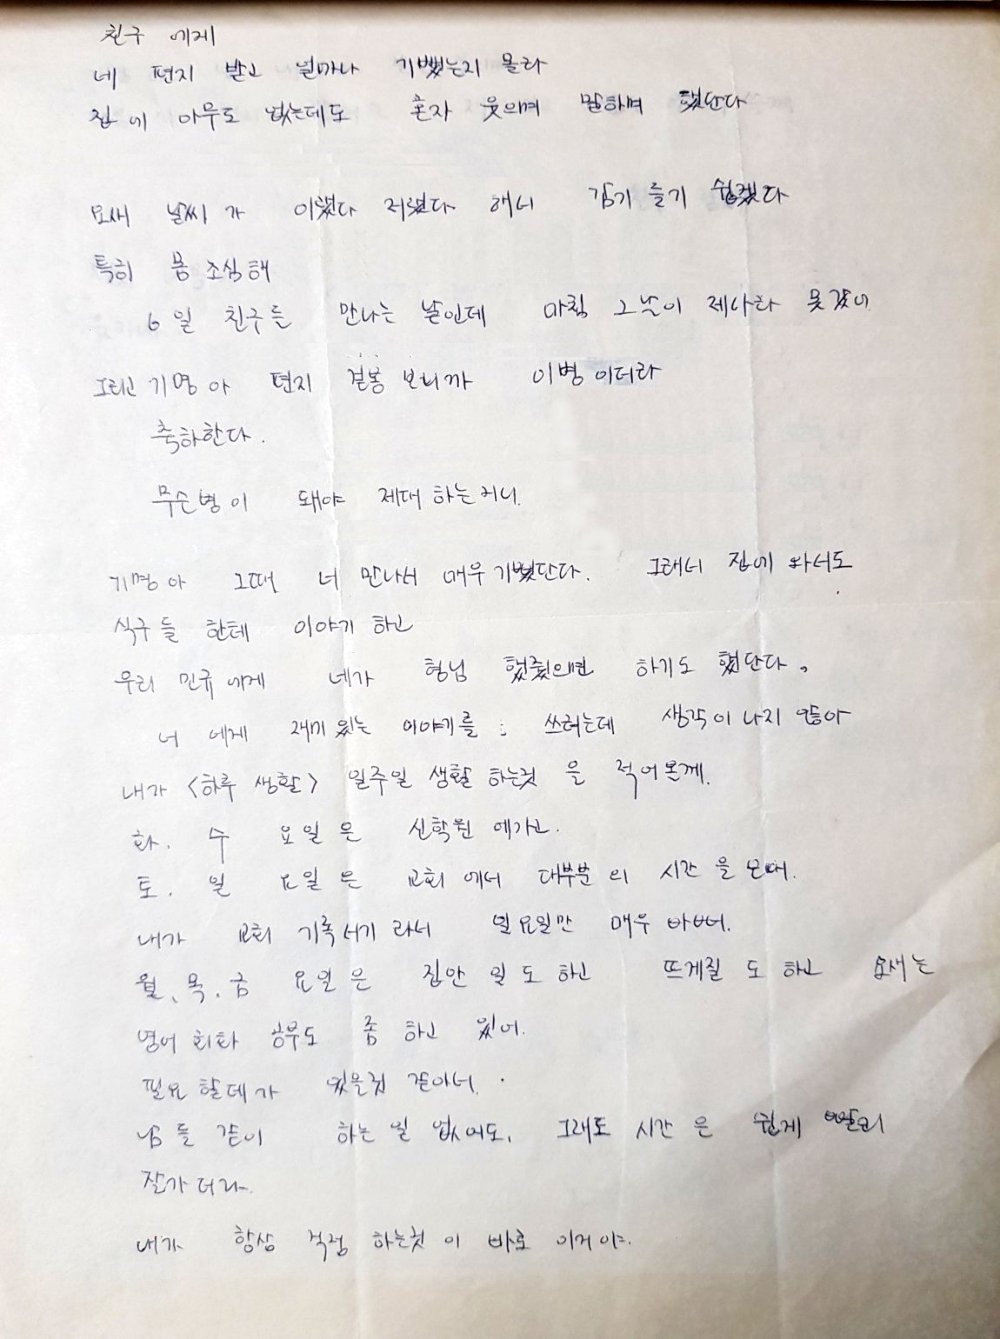 친구 에게
네 편지 받고 얼마나 기뻤는지 몰라
집에 아무도 없는데도 혼자 웃으며 말하며 했단다
요새 날씨가 이랬다 저랬다 해서 감기 들기 쉽겠다
특히 몸 조심해
6일 친구를 만나는 날인데 마침 그날이 제사라 못갔어
그리고 기명아 편지 겉봉 보니까 이병이더라
축하한다.
무슨병이 돼야 제대 하는거니.
기명아 그때 너 만나서 매우 기뻤단다. 그래서 집에 와서도
식구들 한테 이야기 하고
우리 민규에게 네가 형님 했줬으면 하기도 했단다.
너 에게 재미있는 이야기를 쓰려는데 생각이 나지 않아
내가 <하루 생활> 일주일 생활 하는것 을 적어볼께.
화. 수 요일은 신학원 에가고.
토. 일 요일은 교회에서 대부분의 시간을 보내.
내가 교회 기록서기 라서 일요일만 매우 바뻐.
월, 목, 금 요일은 집안 일도 하고 뜨게질 도 하고 요새는
영어 회화 공부도 좀 하고 있어.
필요 할데가 있을것 같아서.
남들 같이 하는 일 없어도. 그래도 시간은 쉽게
잘가더라.
내가 항상 걱정 하는것이 바로 이거야.